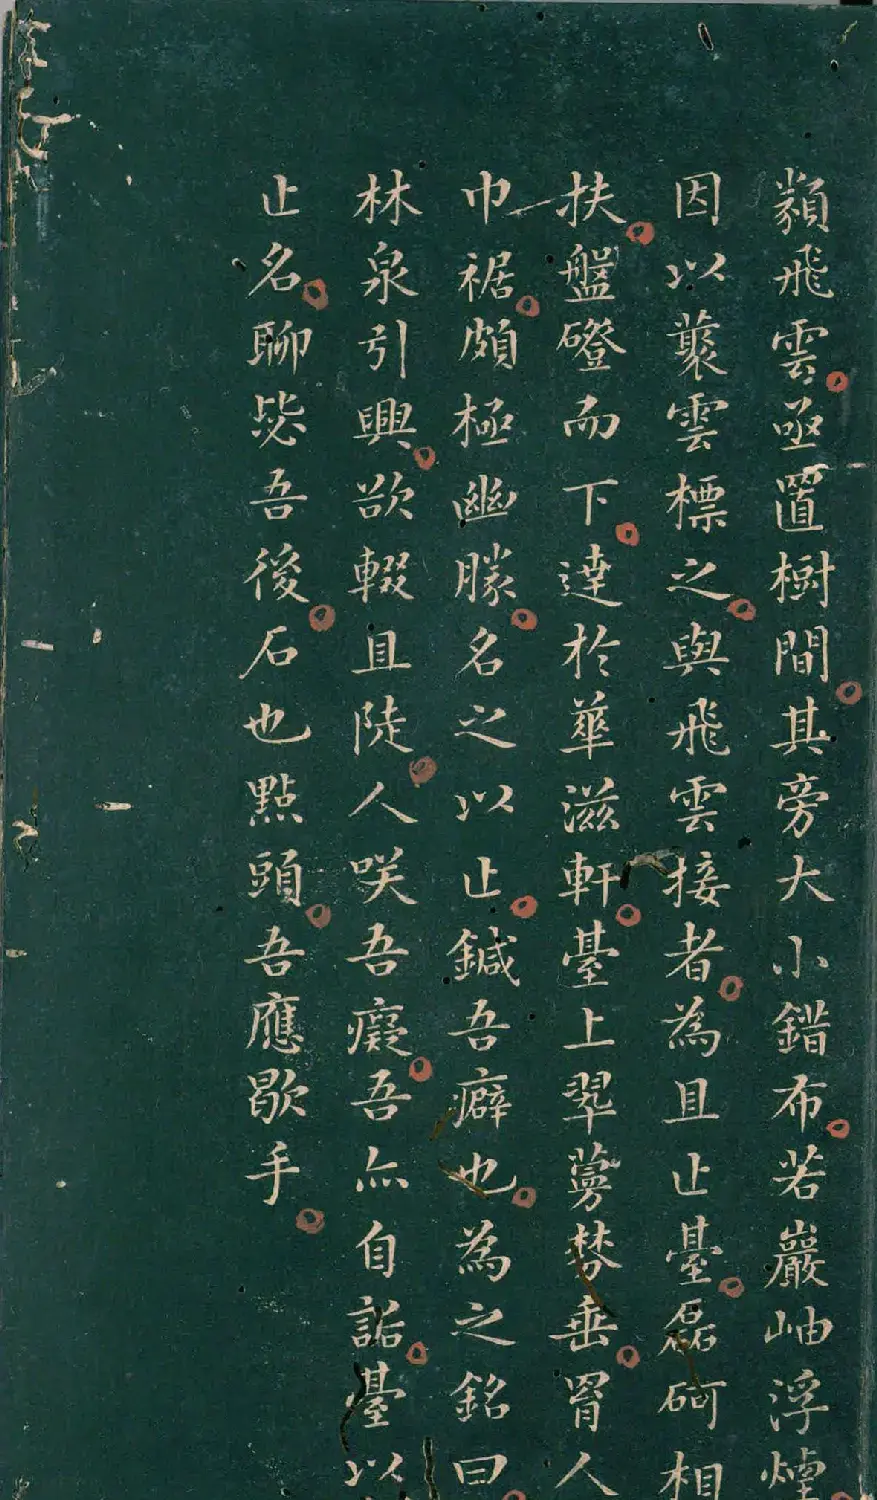 纇飛雲亟置樹間其旁大小錯布若巖岫浮煙
因以藂雲標之與飛雲接者為且止臺磊砢相
扶盤磴而下達於華滋軒臺上翠蔓棼垂罥人
巾裾頗極幽勝名之以止鍼吾癖也為之銘曰
林泉引興欲輟且陡人咲吾癡吾亦自詬臺以
止名聊毖吾後石也點頭吾應歇手